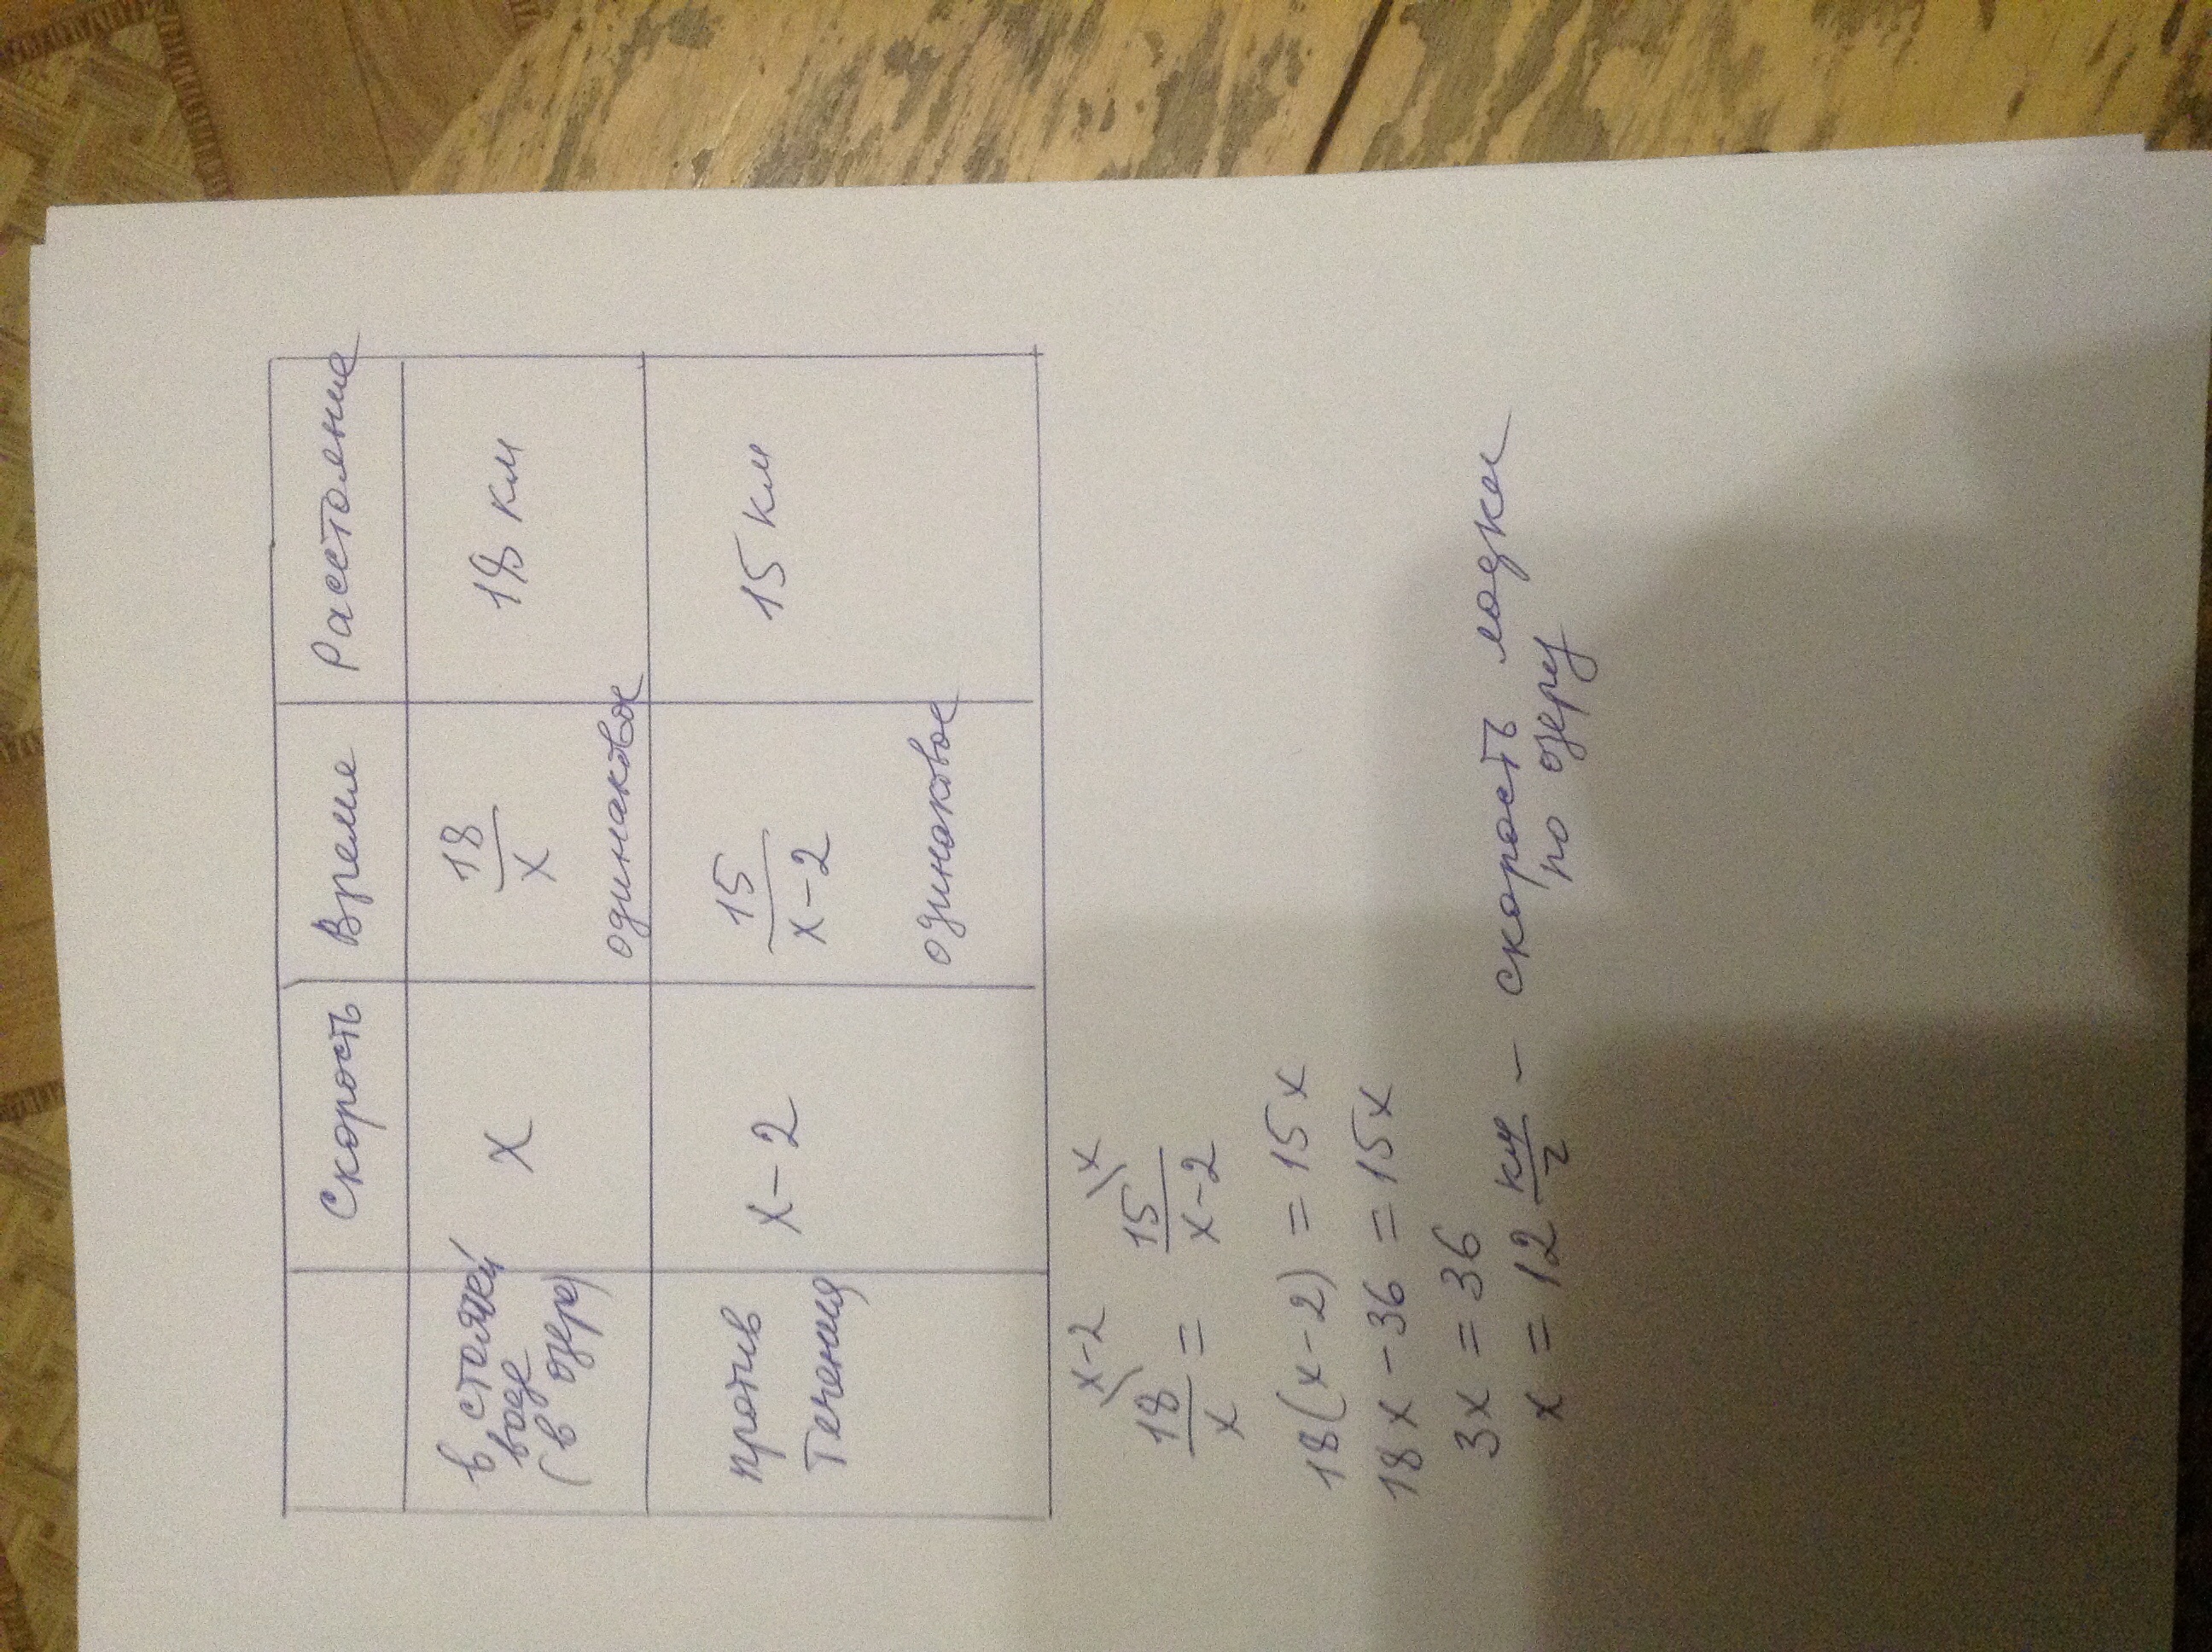 Скорость Время Расстояние
в стоячей воде (в озере) x 18/x одинаковое 18 км
против течения x-2 15/x-2 одинаковое 15 км
x-2 x
18/x = 15/x-2
18(x-2) = 15x
18x-36 = 15x
3x = 36
x = 12 км/г - скорость лодки
по озеру